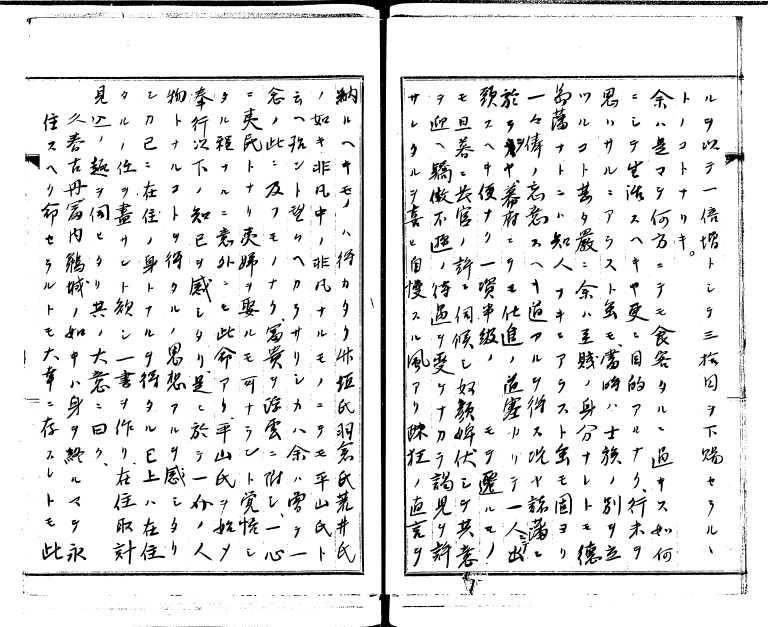 ルヲ以テ一倍増トシテ三拾円ヲ下賜セラルヽ
トノコトナリキ。
余ハ是マテ何方ニテモ食客タルニ過キス如何
ニシテ生活スヘキヤ更ニ目的アルナク、行末ヲ
思ハサルニアラスト虽モ、當時ハ士族ノ別ヲ立
ツルコト甚タ嚴ニ余ハ至賎ノ身分ナレトモ德
島藩ナトニハ知人ヲキニアラスト虽モ固ヨリ
一々儕ノ忘意スヘキ道アルヲ得ス况ヤ諸藩ニ
於テヤ幕府ニテモ仕進ノ道塞カリテ一人出
頭スヘキ便ナク一資半級ノモヲ遷ルモノ
モ旦暮ニ長官ノ許ニ伺候シ奴顔婢伏シテ其意
ヲ迎ヘ驕傲不遜ノ待遇ヲ受ケナカラ謁見ヲ許
サレタルヲ喜ヒ自慢スル風アリ踈狂ノ直言ヲ
納ルヘキモノハ得カタク小垣氏羽倉氏荒井氏
ノ如キ非凡中ノ非凡ナルモノニテモ平山氏ト
云ヘ殆ント望ムヘカラサリシカハ余ハ曽テ一
念ノ此ニ及フモノナク、富貴ヲ浮雲ニ附シ、一心
ニ夷民トナリ夷婦ヲ娶ルモ可ナラント覚悟シ
タル程ナルニ意外ニモ此命アリ平山氏ヲ始メ
奉行以下ノ知己ヲ感シタリ是ニ於テ一介ノ人
物トナルコトヲ得タルノ思想アルヲ感シタリ
シカ已ニ在住ノ身トナルヲ得タル已上ハ在住
タルノ任ヲ盡サント欲シ一書ヲ作リ、在住取計
見込ノ趣ヲ伺ヒタリ其ノ大意ニ曰ク、
久春古丹富内鵜城ノ如キハ身ヲ終ルマテ永
住スヘリ命セラルトモ大幸ニ存スレトモ此